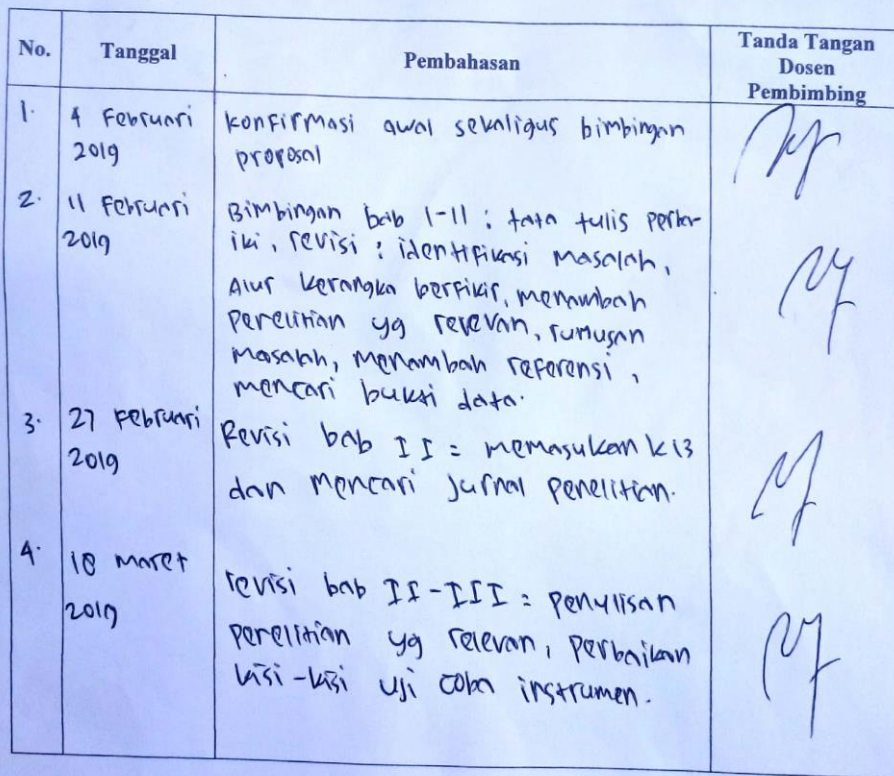 No. Tanggal Pembahasan Tanda Tangan
Dosen
Pembimbing
1. 4 Februari konfirmasi awal sekaligus bimbingan
2019 proposal
2. 11 Februari Bimbingan bab 1-11 : tata tulis perba-
2019 iki, revisi : identifikasi masalah,
Alur kerangka berfikir, menambah
penelitian yg relevan, rumusan
masalah, menambah referensi,
mencari bukti data.
3. 27 Februari Revisi bab II = memasukan k13
2019 dan mencari jurnal penelitian.
4. 18 maret revisi bab II-III = penulisan
2019 penelitian yg relevan, perbaikan
kisi-kisi uji coba instrumen.